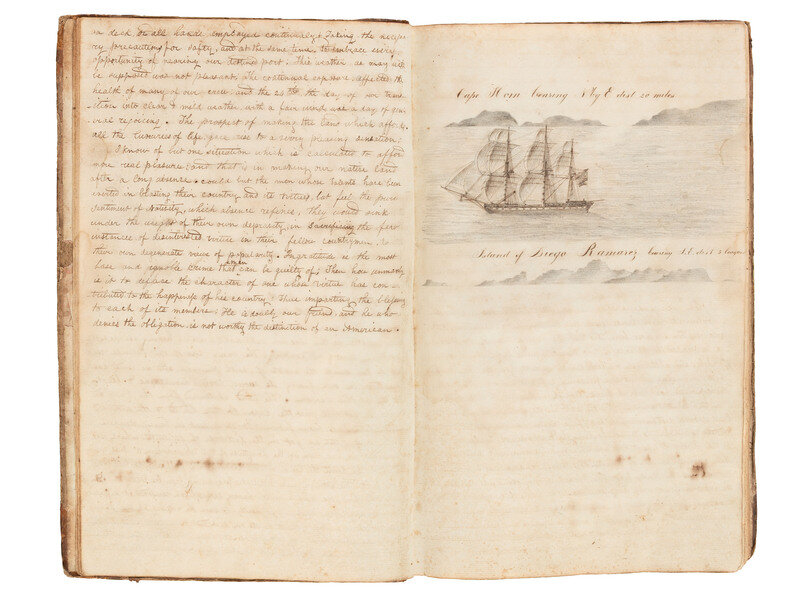 on deck or all hands employed continually, taking the necessa
ry precautions for safety, and at the same time, to embrace every
opportunity of nearing our destined port. This weather, as may well
be supposed was not pleasant. The continual exposure affected the
health of many of our crew and the 24th the day of our trans
ition into clear & mild weather with a fair wind was a day of gen
eral rejoicing. The prospect of making the land which affords
all the luxuries of life, gave rise to a very pleasing sensation.
I know of but one situation which is calculated to afford
more real pleasure and that is in making our native land
after a long absence. could but the men whose talents have been
exerted in blessing their country and its virtues, but feel the pure
sentiment of which absence refines, they would sink
under the weight of their own depravity, in sacrificing the few
instances of disinterested virtue in their fellow countrymen, to
their own degenerate views of popularity. Ingratitude is the most
base and ignoble crime that man can be guilty of; Then how unmanly
is it to defame the character of one whose virtue has con
tributed to the happiness of his country. Thus imparting the blessing
to each of its members. He is doubly our friend, and he who
denies the obligation is not worthy the distinction of an American.
Cape Horn bearing N by E dist 20 miles
Island of Diego Ramarez bearing S.E. dist 3 leagues